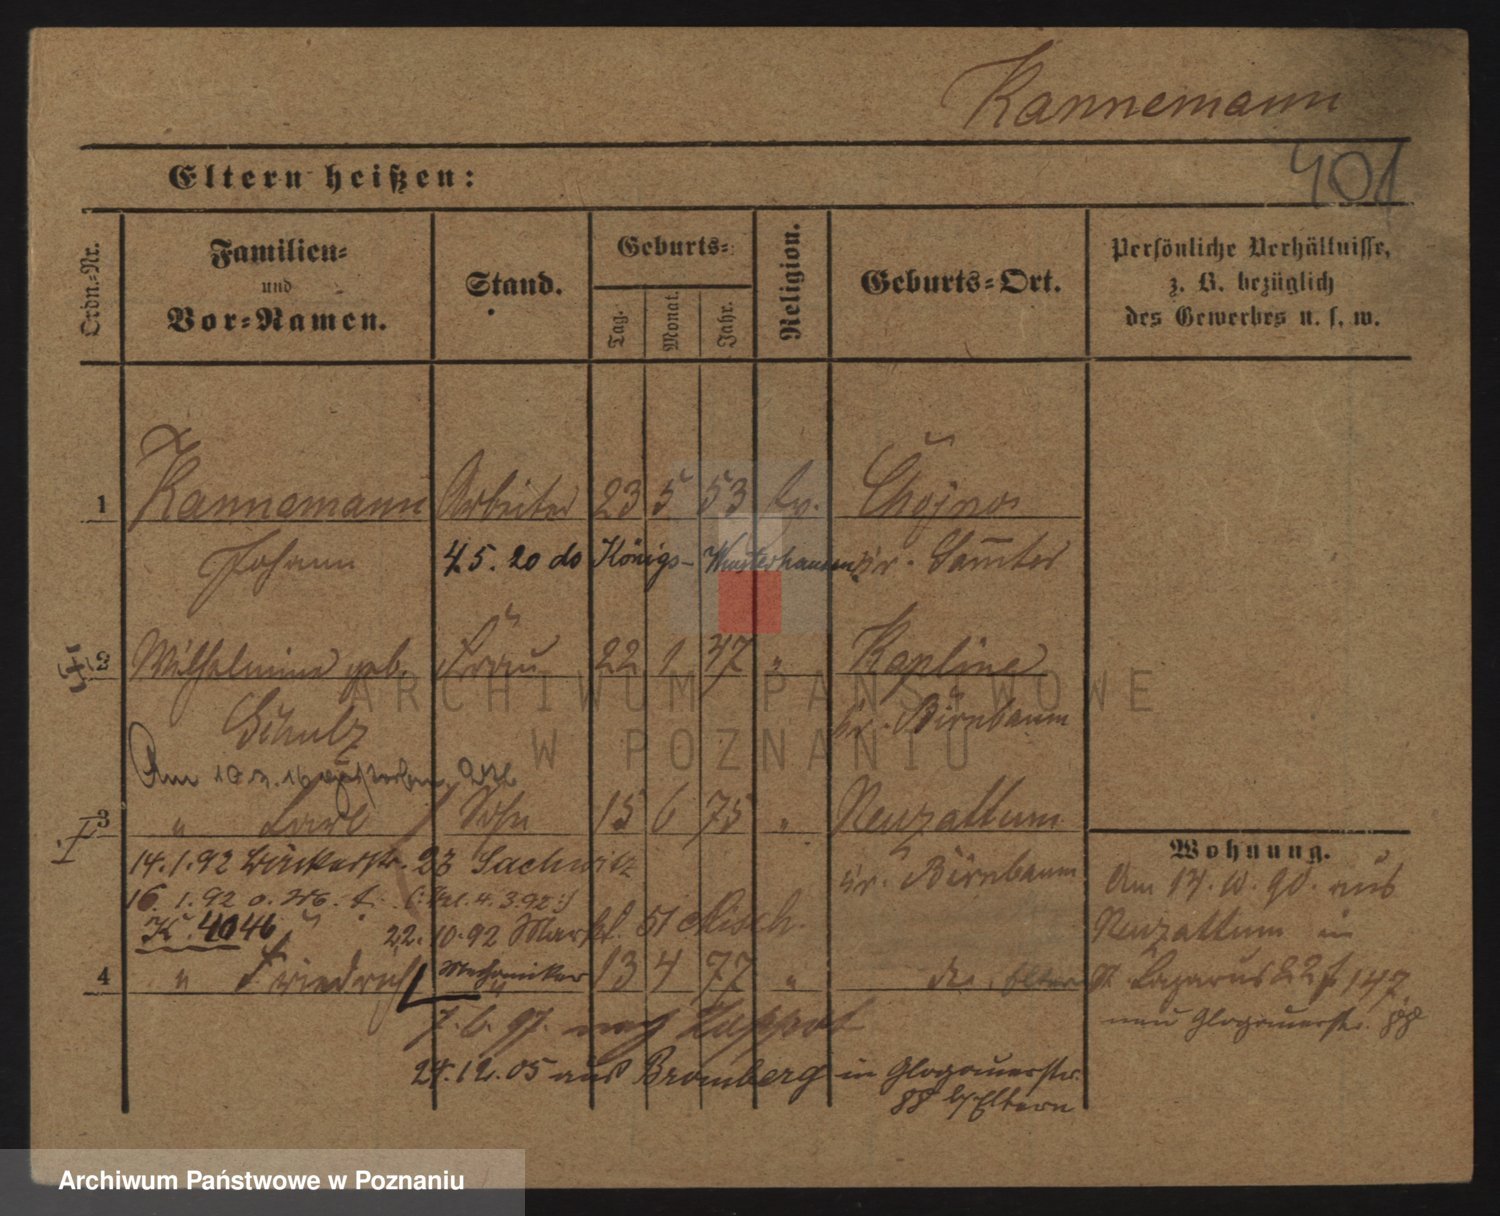 Kannemann
401
Eltern heißen:
Ordn.-Nr.
Familien-
und
Vor-Namen.
Stand.
Geburts-
Tag.
Monat.
Jahr.
Religion.
Geburts-Ort.
Persönliche Verhältnisse,
z. B. bezüglich
des Gewerbes u. s. w.
1 Kannemann Arbeiter 23 5 53 Ev. Chojno
Johann 4.5.20 do Königs-Wusterhausen Kr. Samter
2 Wilhelmine geb. Frau 22 1 47 " Kapline
Schulz Kr. Birnbaum
Am 10. 16 gestorben
3 " Carl Sohn 15 6 75 " Neuzattum
Wohnung.
14.1.92 23 Sachwitz Kr. Birnbaum
Am 17. 10. 90. aus
16. 1.92 4.3.92
K 4046 22.10.92 Markt 51 Neuzattum in
4 " Friedrich Mechaniker 13 4 77 " St. Lazarus 147.
7.6.97. nach neu Glogauerstr. 88
24.12.05 aus Bromberg in Glogauerstr.
88 b/Eltern
ARCHIWUM PAŃSTWOWE
W POZNANIU
Archiwum Państwowe w Poznaniu